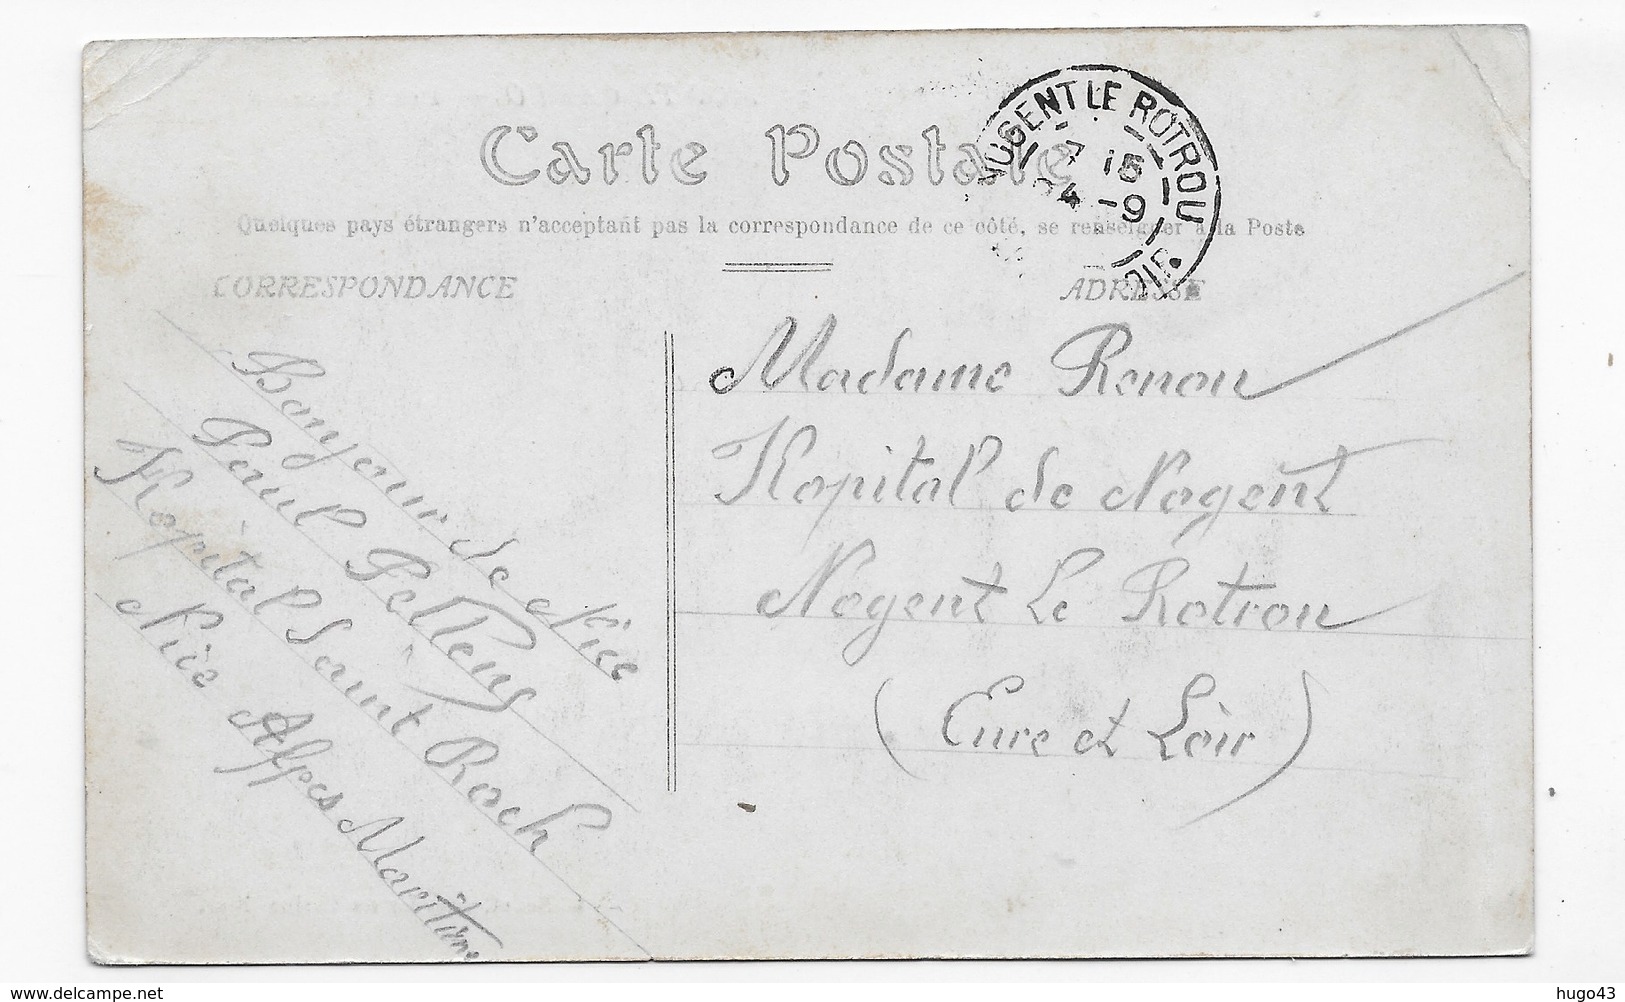 Carte Postale
Quelques pays étrangers n'acceptant pas la correspondance de ce côté, se renseigner à la Poste
CORRESPONDANCE
ADRESSE
NOGENT LE ROTROU
7 15
4 -9
Bonjour de Nice
Paul
Hopital Saint Roch
Nice Alpes Maritime
Madame Renou
Hopital de Nogent
Nogent Le Rotrou
(Eure et Loir)
www.delcampe.net
hugo43